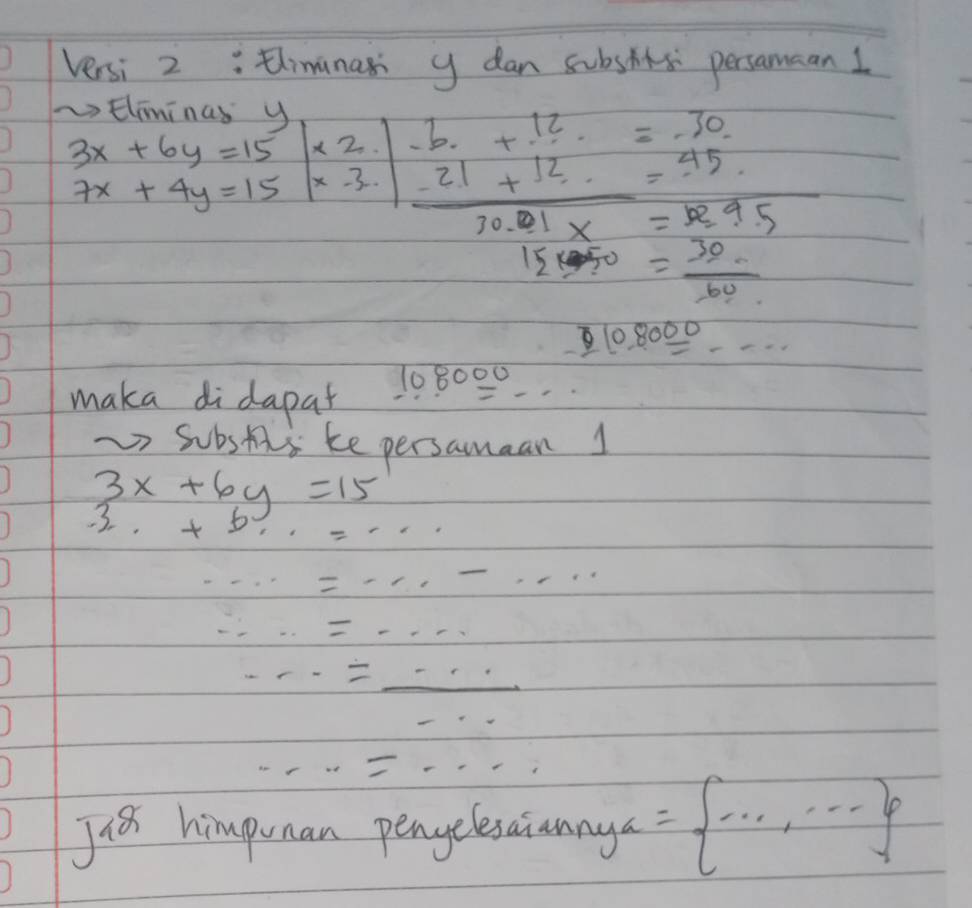 Versi 2 : Eliminasi y dan substitsi persamaan 1
~> Eliminas y
3x + 6y = 15 | x 2. | .6. + 12. = .30.
7x + 4y = 15 | x .3. | .21 + 12. = .45.
30. 1 x = 95
15 50 = 30.
60.
108000 = ....
maka di dapat 108000 = ...
~> Substits ke persamaan 1
3x + 6y = 15
.3. . + 6. . . = ....
.... = .... - ....
.... = ....
.... = ...
...
.... = ....
himpunan penyelesaiannya = {..., ...}